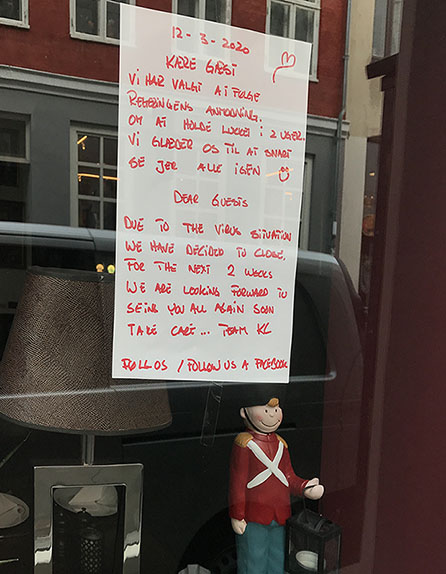 12-3-2020
KÆRE GÆST
VI HAR VALGT AT FØLGE
REGERINGENS ANMODNING.
OM AT HOLDE LUKKET I 2 UGER.
VI GLÆDER OS TIL AT SNART
SE JER ALLE IGEN
DEAR GUESTS
DUE TO THE VIRUS SITUATION
WE HAVE DECIDED TO CLOSE,
FOR THE NEXT 2 WEEKS
WE ARE LOOKING FORWARD TO
SEING YOU ALL AGAIN SOON
TAKE CARE... TEAM KL
FØLL OS / FOLLOW US A FACEBOOK